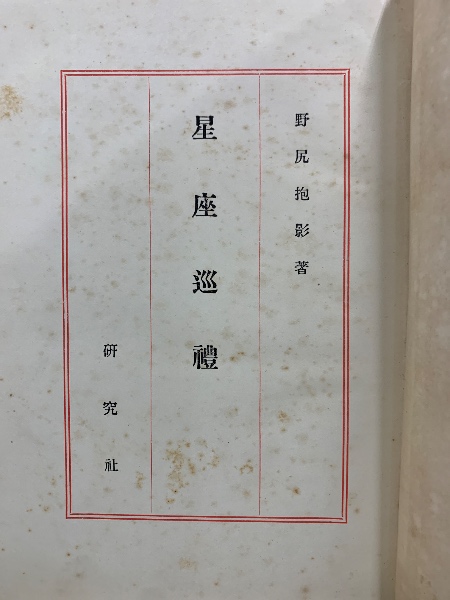 野尻抱影著
星座巡禮
研究社